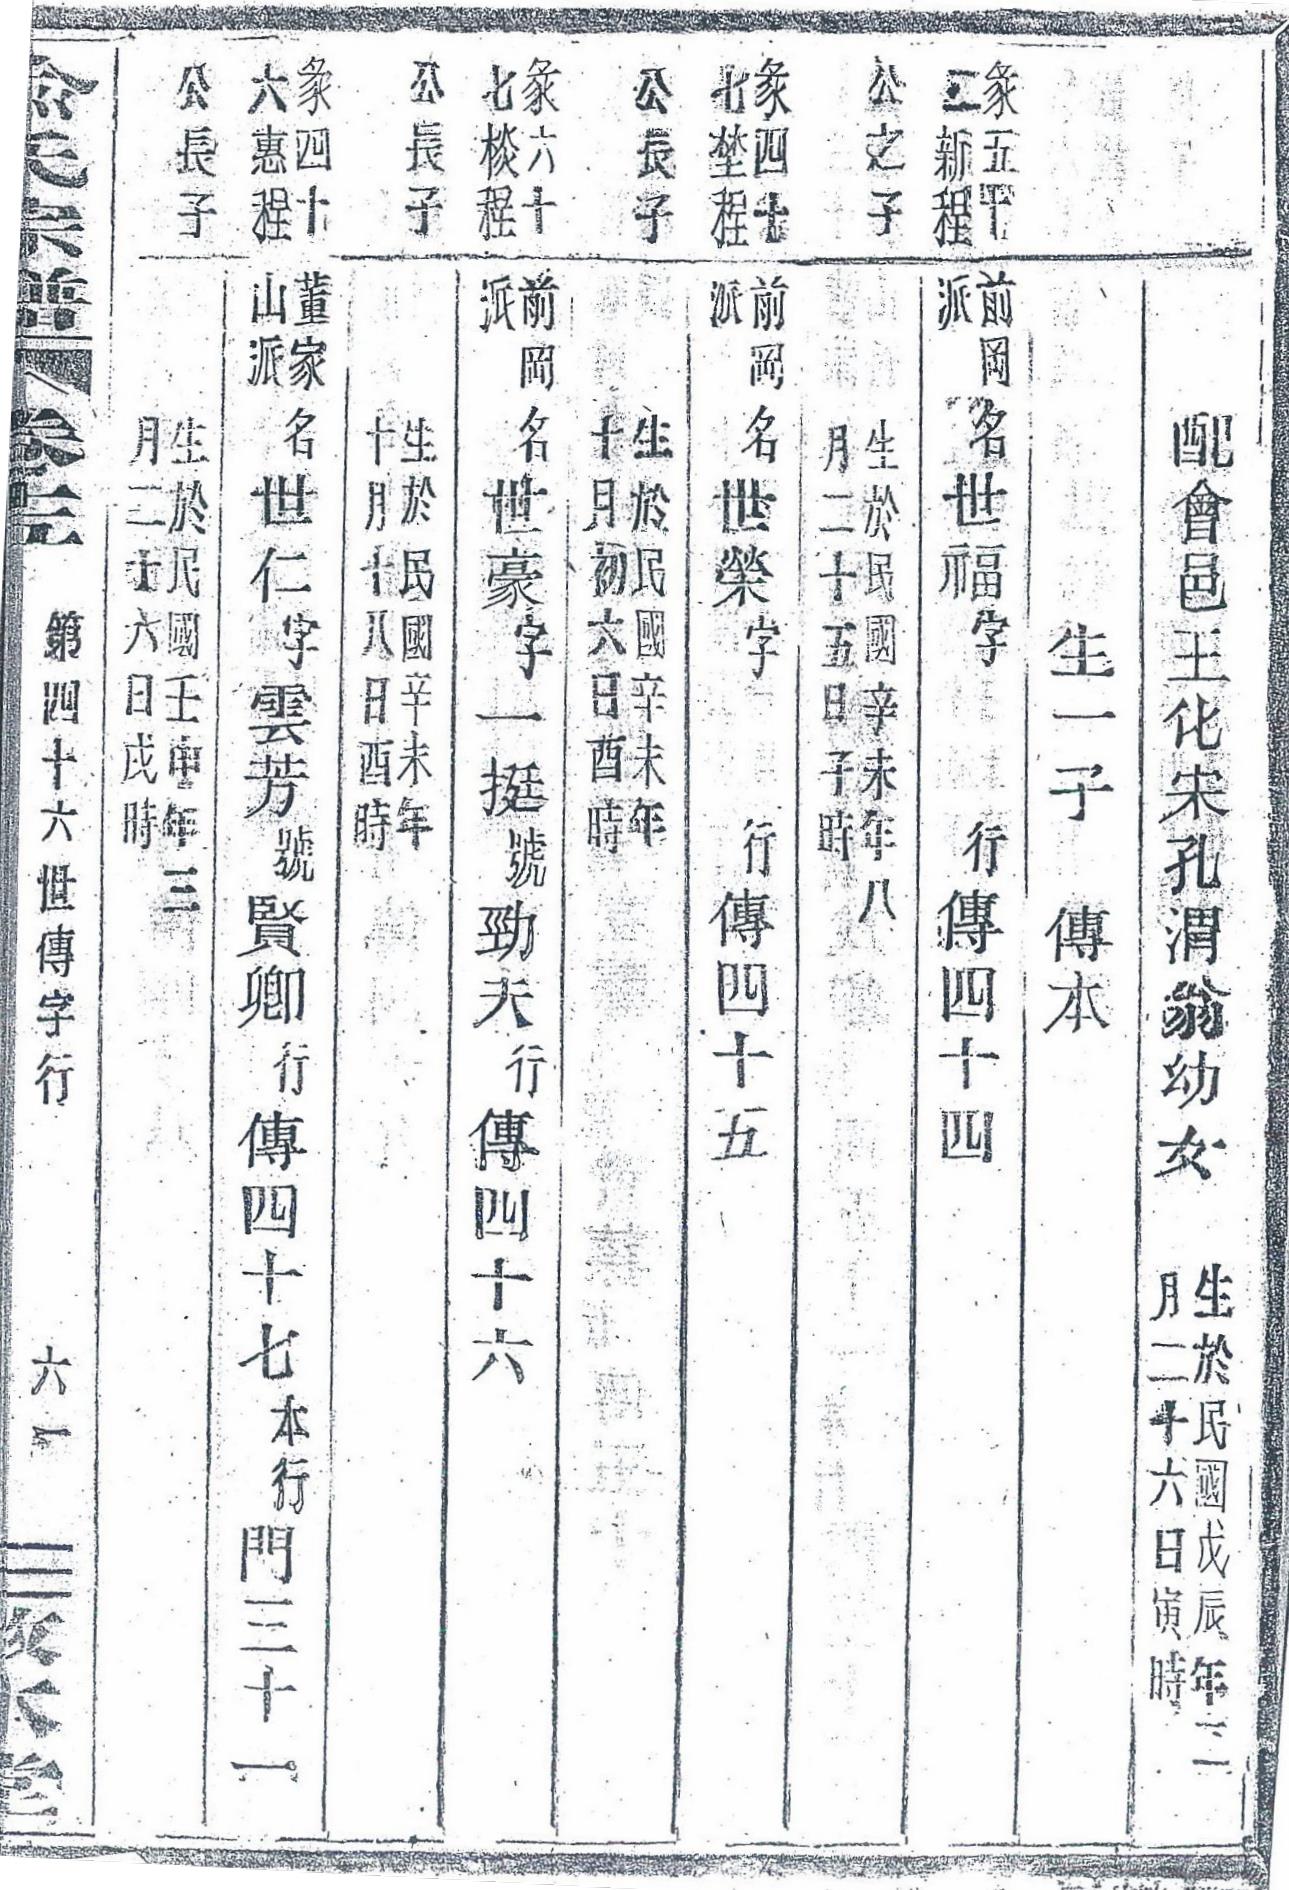 配會邑王化宋孔渭翁幼女
生於民國戊辰年二
月二十六日寅時
生一子 傳本
彖五十
二新程
公之子
前岡
派
名世福字 行傳四十四
生於民國辛未年八
月二十五日子時
彖四十
七埜程
公長子
前岡
派
名世榮字 行傳四十五
生於民國辛未年
十月初六日酉時
彖六十
七棪程
公長子
前岡
派
名世豪字一挺號勁夫行傳四十六
生於民國辛未年
十月十八日酉時
彖四十
六惠程
公長子
董家
山派
名世仁字雲芳號賢卿行傳四十七本行門三十一
生於民國壬申年三
月二十六日戌時
氏宗譜
卷
第四十六世傳字行
六一
堂